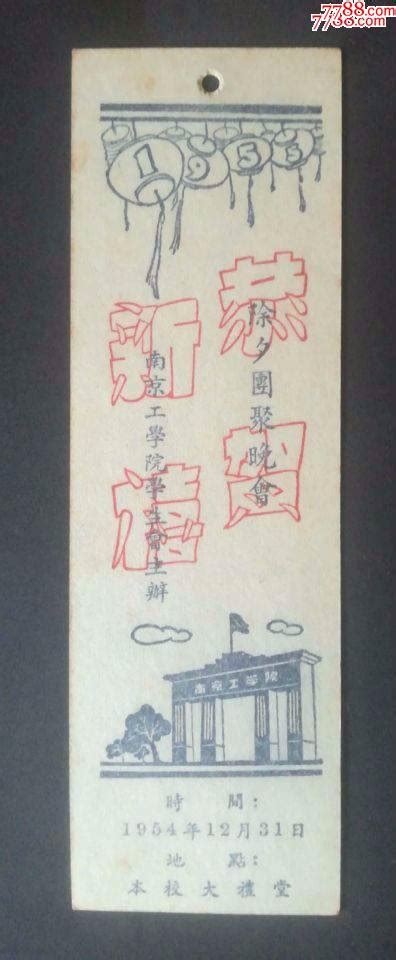 7788.com
中国收藏热线
1955
恭賀
新禧
除夕團聚晚會
南京工學院學生會主辦
南京工學院
時間:
1954年12月31日
地點:
本校大禮堂